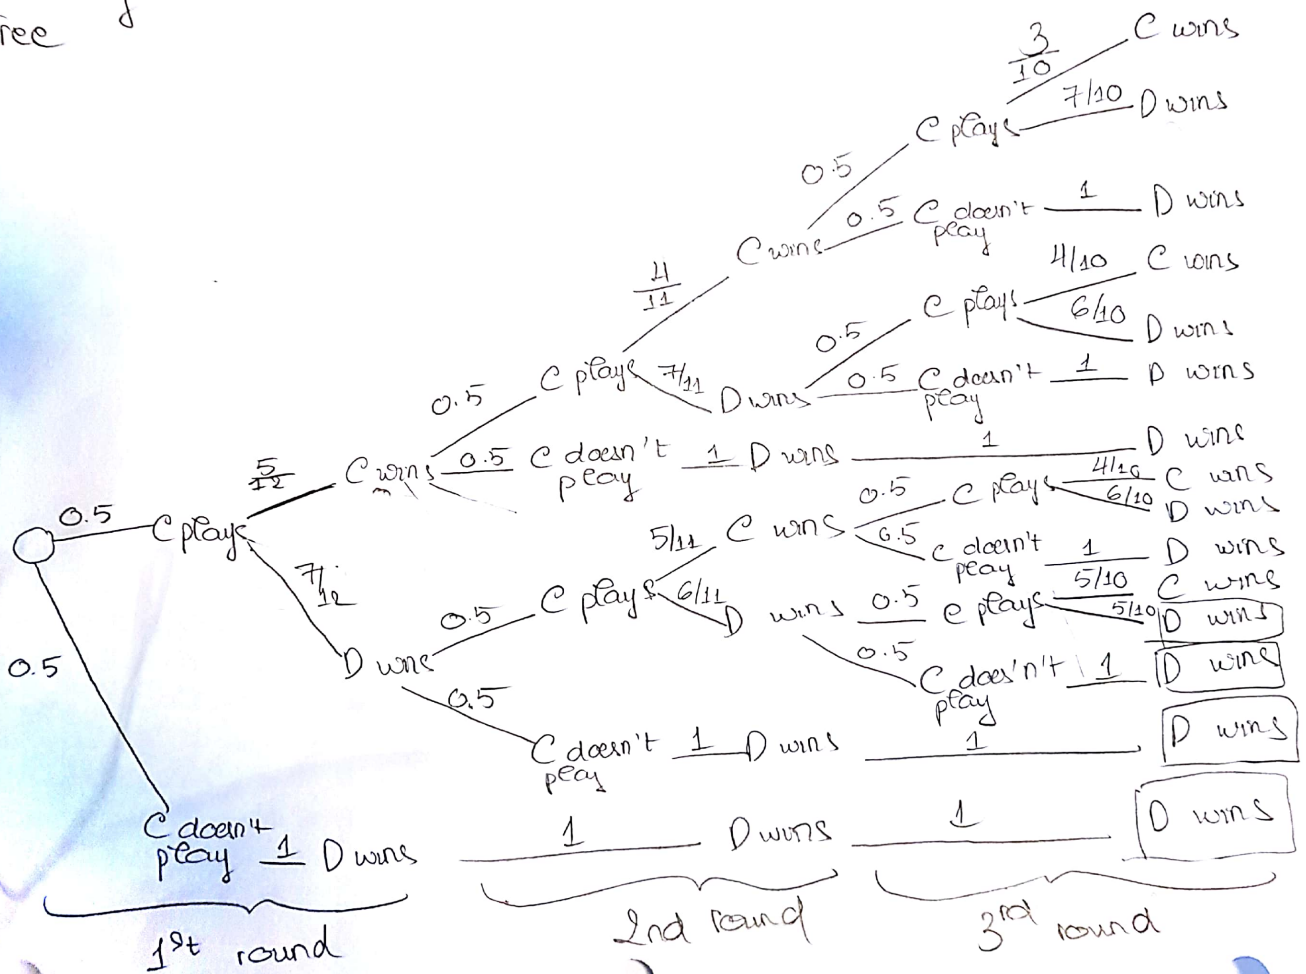 ree
3/10 C wins
C plays 7/10 D wins
0.5
0.5 C doesn't play 1 D wins
C wins
4/11
4/10 C wins
C plays 6/10 D wins
0.5
C plays 7/11 D wins 0.5 C doesn't play 1 D wins
0.5
5/12 C wins 0.5 C doesn't play 1 D wins 1 D wins
0.5 C plays 4/10 C wins
6/10 D wins
5/11 C wins 0.5 C doesn't play 1 D wins
0.5 C plays
7/12
0.5 C plays 6/11 D wins 0.5 C plays 5/10 C wins
5/10 D wins
D wins
0.5 C does'n't play 1 D wins
0.5
0.5 C doesn't play 1 D wins 1 D wins
C doesn't play 1 D wins 1 D wins 1 D wins
1st round 2nd round 3rd round